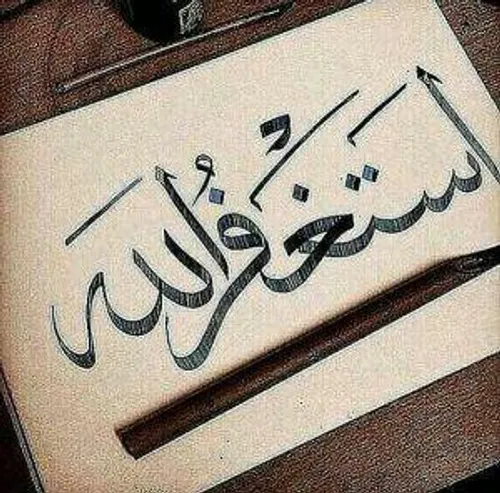 اَستَغْفِرُ الله